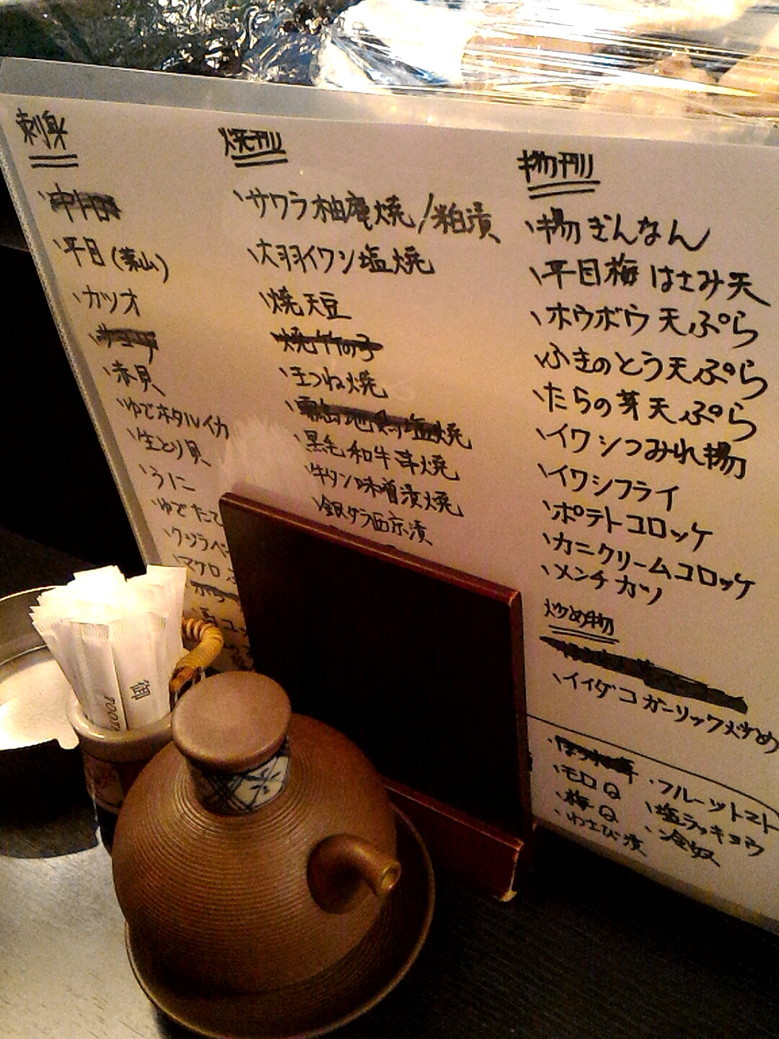 刺身
中トロ
平目(葉山)
カツオ
赤貝
ゆでホタルイカ
生とり貝
うに
ゆでたこ
クジラベ
マグロ
焼物
サワラ柚庵焼/粕漬
大羽イワシ塩焼
焼天豆
焼竹の子
まつね焼
黒毛和牛串焼
牛タン味噌漬焼
銀ダラ西京漬
揚物
揚ぎんなん
平目梅はさみ天
ホウボウ天ぷら
ふきのとう天ぷら
たらの芽天ぷら
イワシつみれ揚
イワシフライ
ポテトコロッケ
カニクリームコロッケ
メンチカツ
炒め物
イイダコガーリック炒め
モロQ ・フルーツトマト
梅Q 塩ラッキョウ
わさび漬 冷奴
御